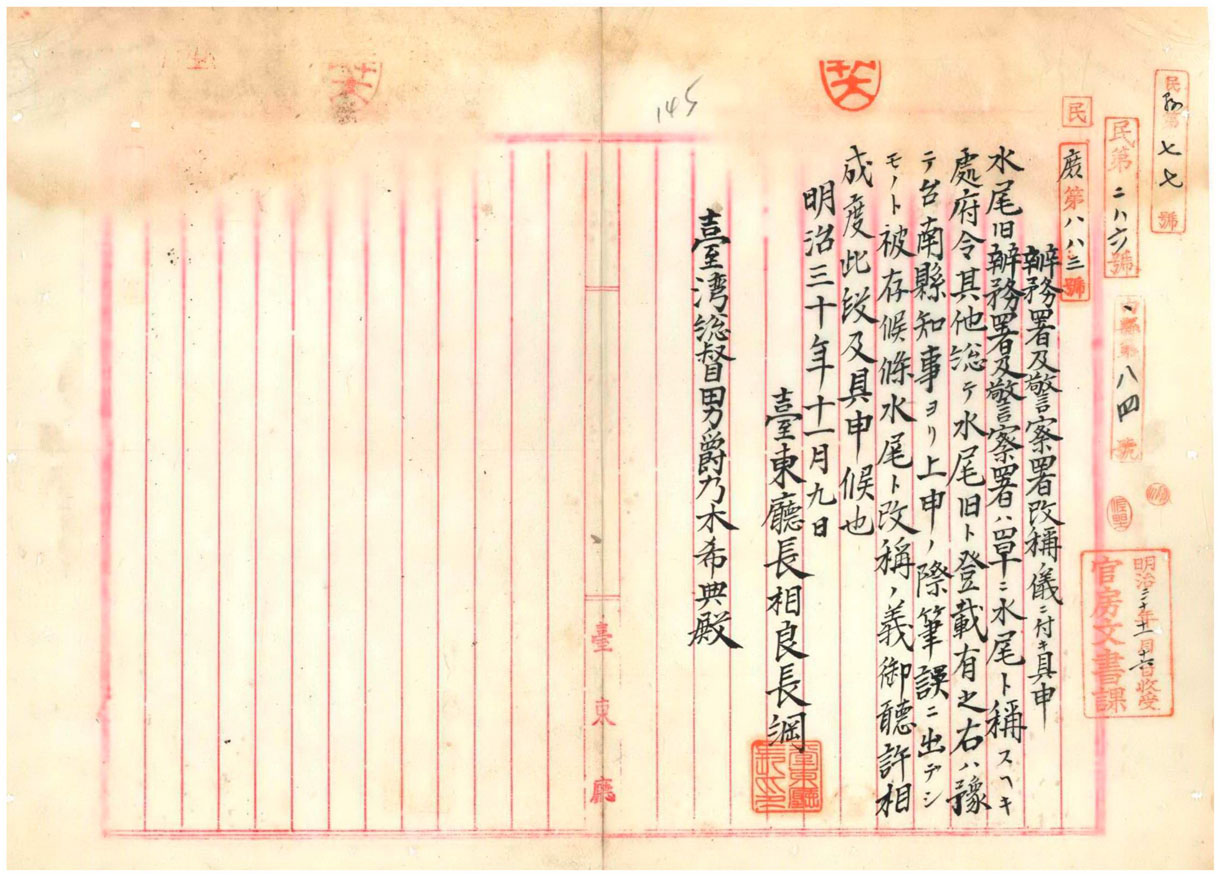 民
第七七號
民第二八六號
民
第八八三號
八四號
明治三十年十一月十六日收受
官房文書課
辦務署及警察署改稱ノ儀ニ付キ具申
水尾旧辦務署及警察署ハ單ニ水尾ト稱スヘキ
處府令其他総テ水尾旧ト登載有之右ハ豫
テ台南縣知事ヨリ上申ノ際筆誤ニ出デシ
モノト被存候條水尾ト改稱ノ義御聽許相
成度此段及具申候也
明治三十年十一月九日
臺東廳長相良長綱
臺東廳長之印
臺湾総督男爵乃木希典殿
145
契
契
臺東廳